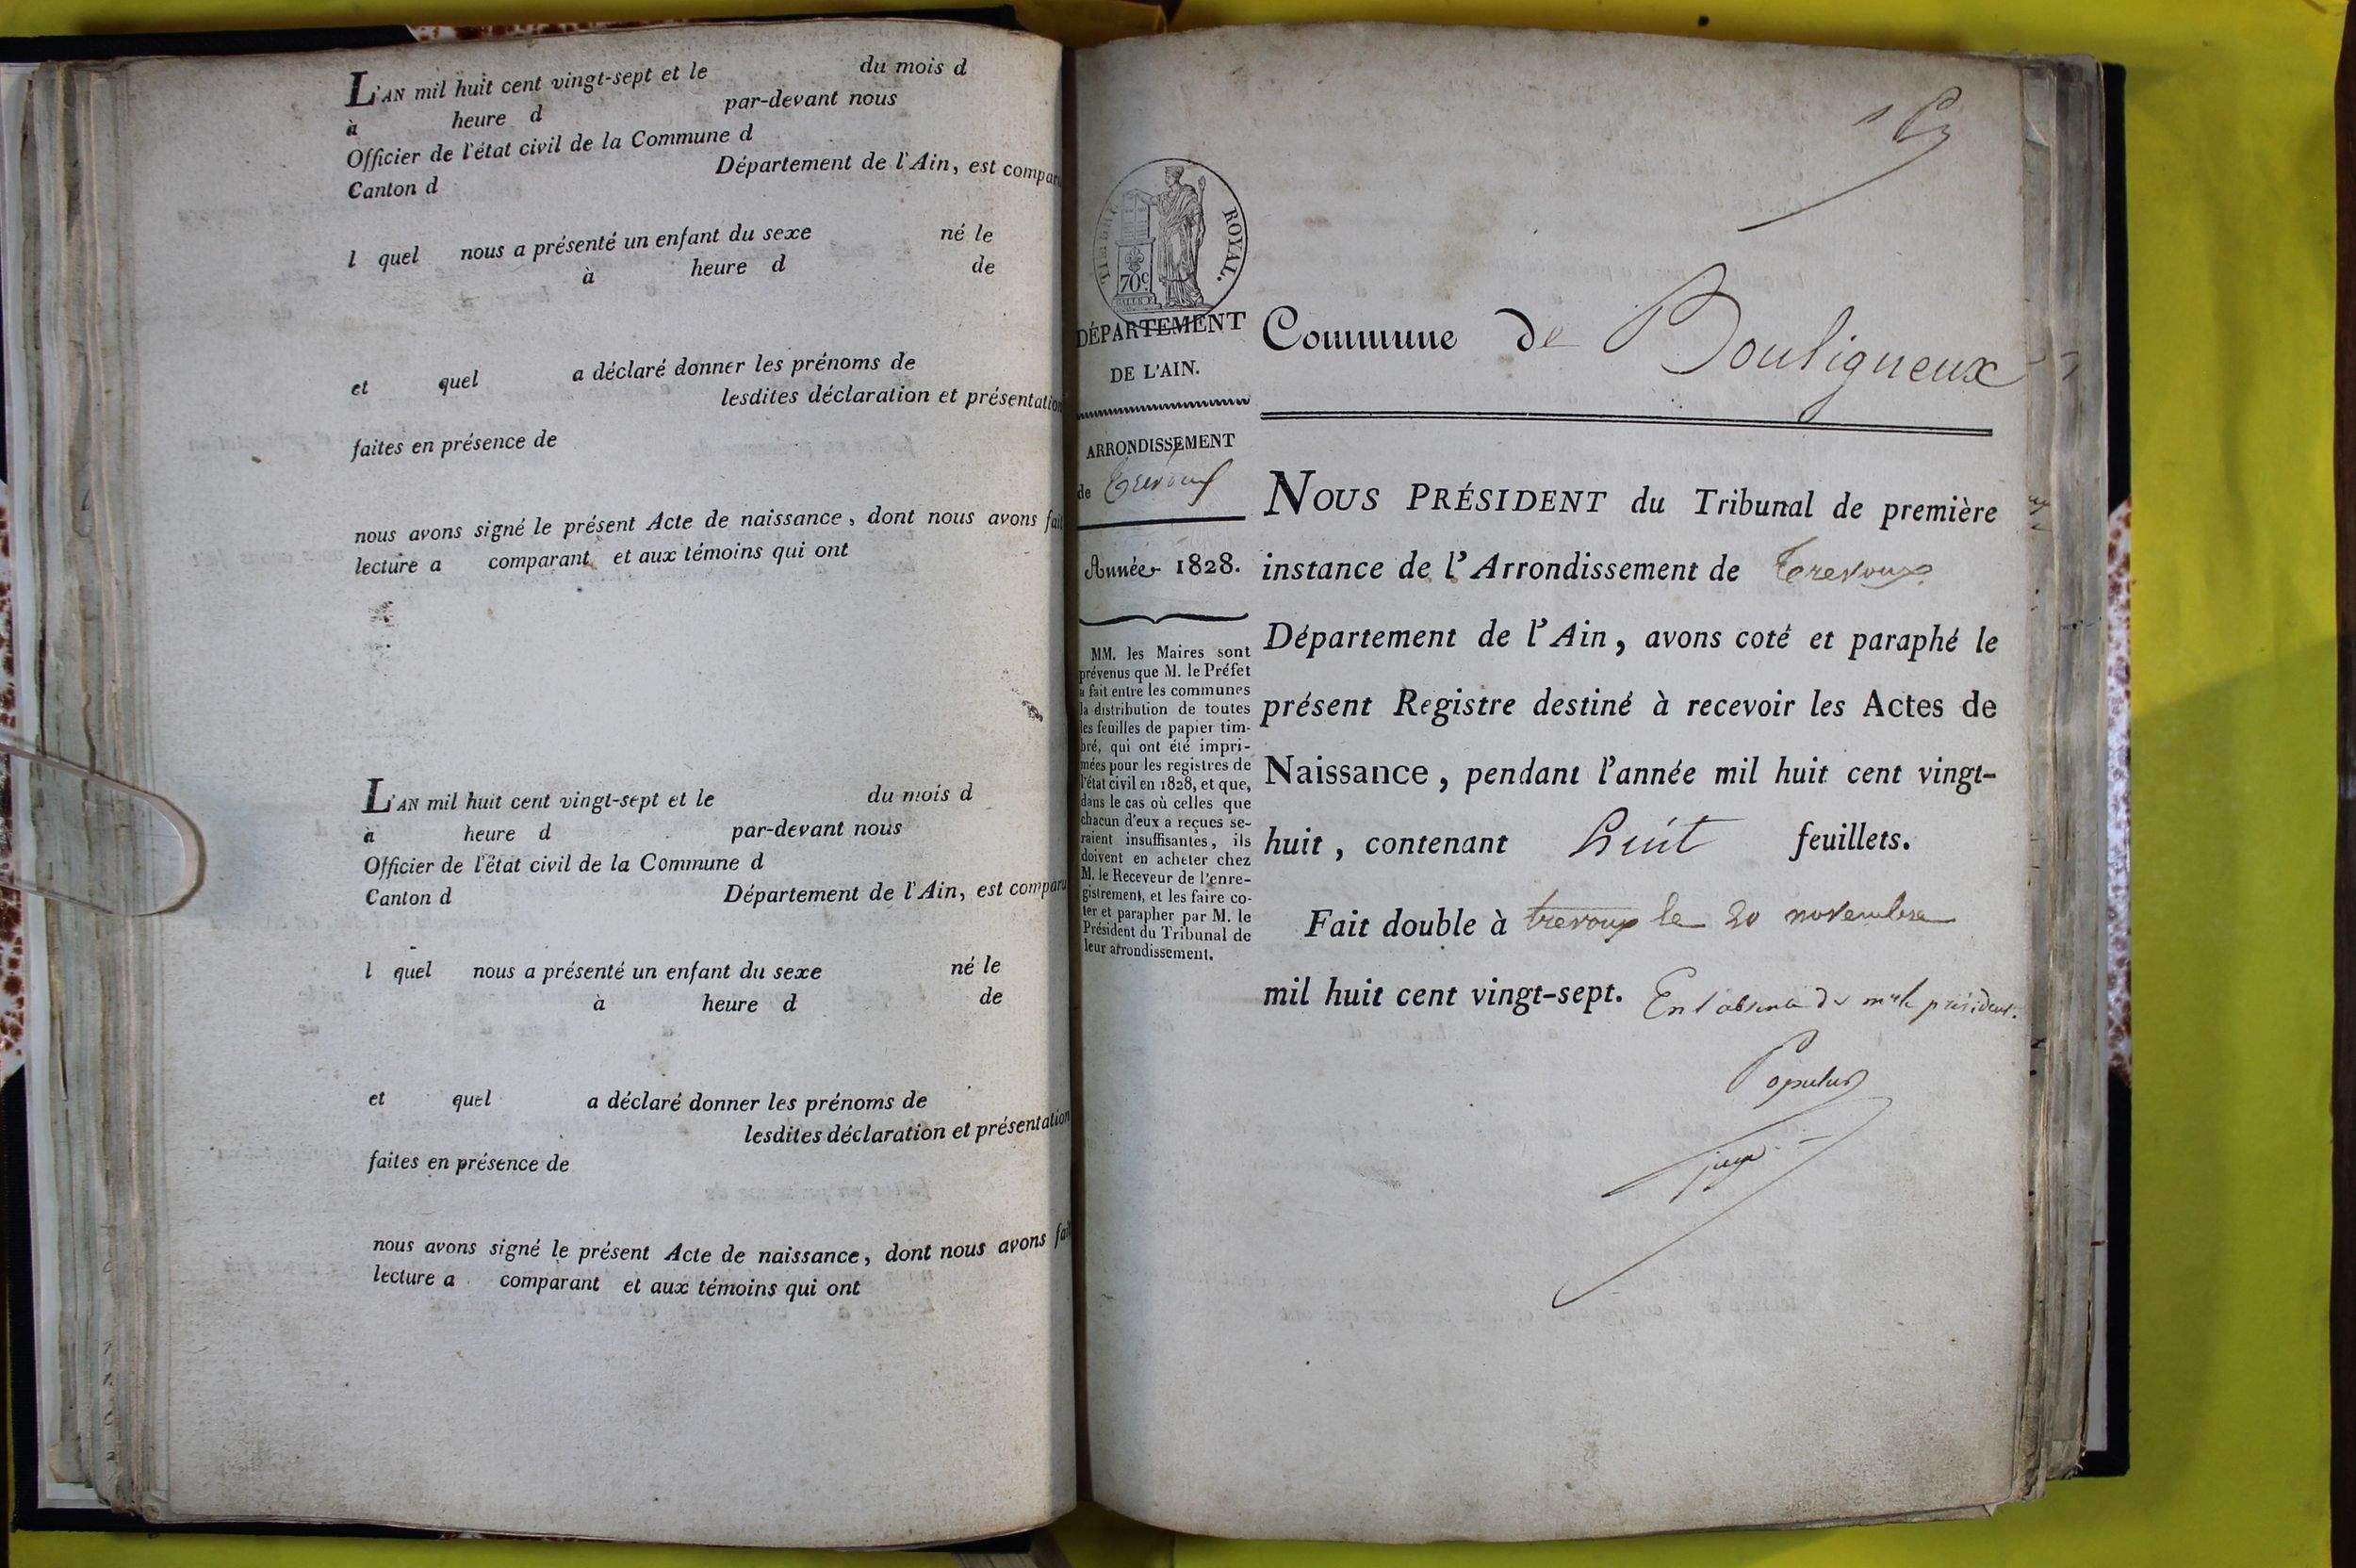 L'AN mil huit cent vingt-sept et le du mois d
à heure d par-devant nous
Officier de l'état civil de la Commune d
Canton d Département de l'Ain, est comparu
l quel nous a présenté un enfant du sexe né le
à heure d de
et quel a déclaré donner les prénoms de
lesdites déclaration et présentation
faites en présence de
nous avons signé le présent Acte de naissance, dont nous avons fait
lecture a comparant et aux témoins qui ont
L'AN mil huit cent vingt-sept et le du mois d
à heure d par-devant nous
Officier de l'état civil de la Commune d
Canton d Département de l'Ain, est comparu
l quel nous a présenté un enfant du sexe né le
à heure d de
et quel a déclaré donner les prénoms de
lesdites déclaration et présentation
faites en présence de
nous avons signé le présent Acte de naissance, dont nous avons fait
lecture a comparant et aux témoins qui ont
TIMBRE ROYAL.
70c
DÉPARTEMENT
DE L'AIN.
ARRONDISSEMENT
de Trévoux
Année 1828.
MM. les Maires sont
prévenus que M. le Préfet
a fait entre les communes
la distribution de toutes
les feuilles de papier tim-
bré, qui ont été impri-
mées pour les registres de
l'état civil en 1828, et que,
dans le cas où celles que
chacun d'eux a reçues se-
raient insuffisantes, ils
doivent en acheter chez
M. le Receveur de l'enre-
gistrement, et les faire co-
ter et parapher par M. le
Président du Tribunal de
leur arrondissement.
Commune de Bouligneux
NOUS PRÉSIDENT du Tribunal de première
instance de l'Arrondissement de Trevoux
Département de l'Ain, avons coté et paraphé le
présent Registre destiné à recevoir les Actes de
Naissance, pendant l'année mil huit cent vingt-
huit, contenant huit feuillets.
Fait double à trevoux le 20 novembre
mil huit cent vingt-sept. En l'absence de mr le président.
Populus
juge